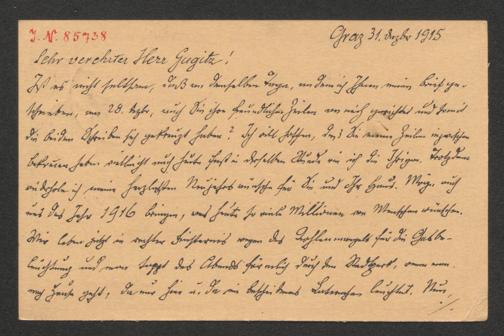 I. N. 85738
Graz 31. Dezbr 1915
Sehr verehrter Herr Gugitz!
Ist es nicht seltsam, daß an demselben Tage, an dem ich Ihnen meinen Brief ge-
schrieben, am 28. Dezbr, auch Sie Ihre freundlichen Zeilen an mich gerichtet und somit
die beiden Schreiben sich gekreuzt haben? Ich will hoffen, daß Sie meine Zeilen inzwischen
bekommen haben, vielleicht auch heute fast in derselben Stunde wie ich die Ihrigen. Trotzdem
wiederhole ich meine herzlichsten Neujahrswünsche für Sie und Ihr Haus. Möge auch
uns das Jahr 1916 bringen, was heute so viele Millionen von Menschen wünschen.
Wir leben jetzt in rechter Finsternis wegen des Kohlenmangels für die Gasbe-
leuchtung und man tappt des Abends förmlich durch den Stadtpark, wenn man
nach Hause geht, da nur hier u. da ein bescheidenes Laternchen leuchtet. Nun
./.